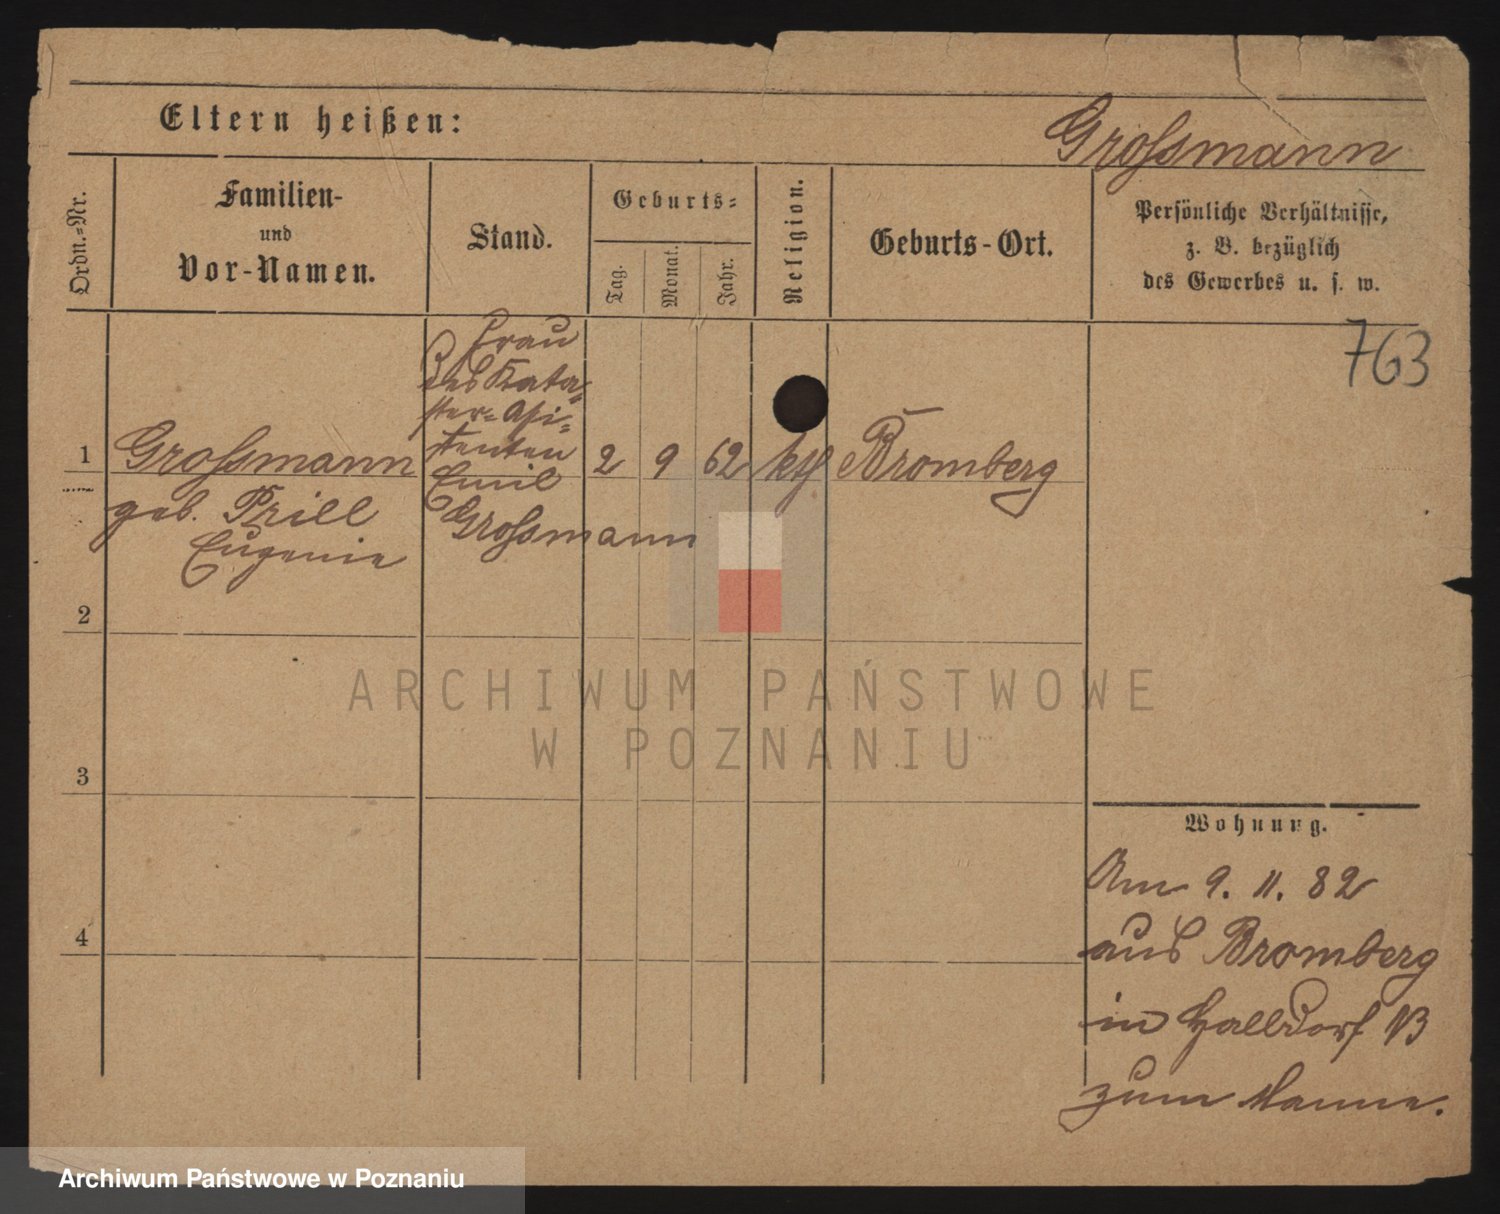 Eltern heißen:
Großmann
Ordn.-Nr.
Familien-
und
Vor-Namen.
Stand.
Geburts-
Tag.
Monat.
Jahr.
Religion.
Geburts-Ort.
Persönliche Verhältnisse,
z. B. bezüglich
des Gewerbes u. s. w.
763
Frau
des Kata-
ster-Assi-
stenten
Emil
Großmann
1 Großmann 2 9 62 kth Bromberg
geb. Prill
Eugenie
2
3
4
ARCHIWUM PAŃSTWOWE
W POZNANIU
Wohnung.
Am 9. 11. 82
aus Bromberg
in Halldorf
zum Manne.
Archiwum Państwowe w Poznaniu